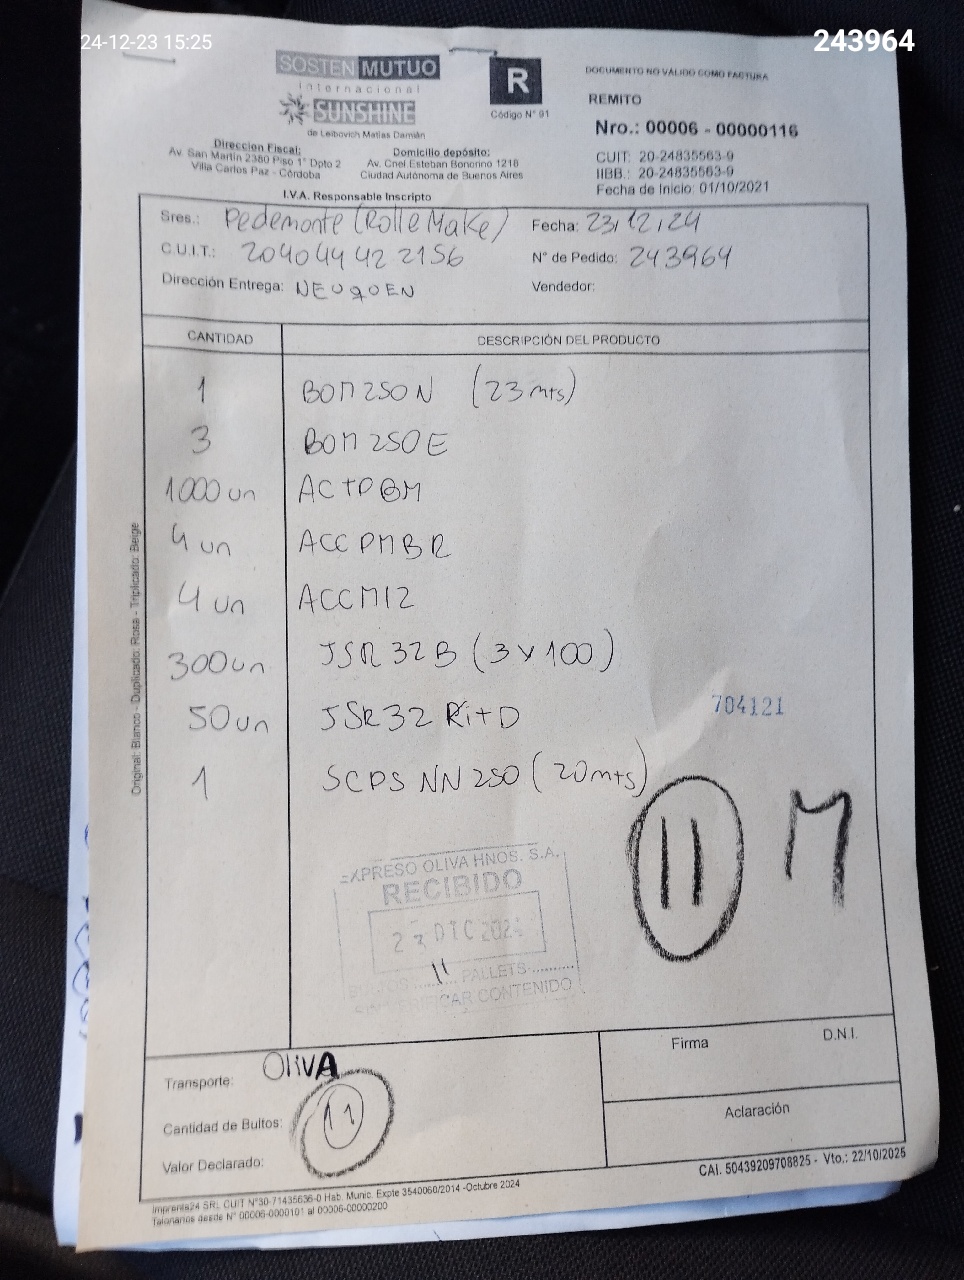 24-12-23 15:25
243964
SOSTEN MUTUO
Internacional
SUNSHINE
de Leibovich Matías Damián
R
Código N° 91
DOCUMENTO NO VÁLIDO COMO FACTURA
REMITO
Nro.: 00006 - 00000116
Dirección Fiscal:
Av. San Martín 2380 Piso 1° Dpto 2
Villa Carlos Paz - Córdoba
Domicilio depósito:
Av. Cnel. Esteban Bonorino 1218
Ciudad Autónoma de Buenos Aires
CUIT: 20-24835563-9
IIBB.: 20-24835563-9
Fecha de Inicio: 01/10/2021
I.V.A. Responsable Inscripto
Sres.: Pedemonte (Rolle Make) Fecha: 23/12/24
C.U.I.T.: 2040444222156 N° de Pedido: 243964
Dirección Entrega: NEUQUEN Vendedor:
CANTIDAD DESCRIPCIÓN DEL PRODUCTO
1 BOM250N (23mts)
3 BOM250E
1000 un ACTPGM
4 un ACCPMBR
4 un ACCM12
300un JSR32B (3x100)
50un JSR32 Rit D
704121
1 SCPS NN250 (20mts)
11 M
EXPRESO OLIVA HNOS. S.A.
RECIBIDO
23 DIC 2024
11
BULTOS PALLETS
SIN VERIFICAR CONTENIDO
Original: Blanco - Duplicado: Rosa - Triplicado: Beige
Transporte: OLIVA
Cantidad de Bultos: 11
Valor Declarado:
Firma D.N.I.
Aclaración
CAI. 50439209708825 - Vto.: 22/10/2025
Imprenta24 SRL CUIT N°30-71435636-0 Hab. Munic. Expte 3540060/2014 -Octubre 2024
Talonarios desde N° 00006-0000101 al 00006-00000200